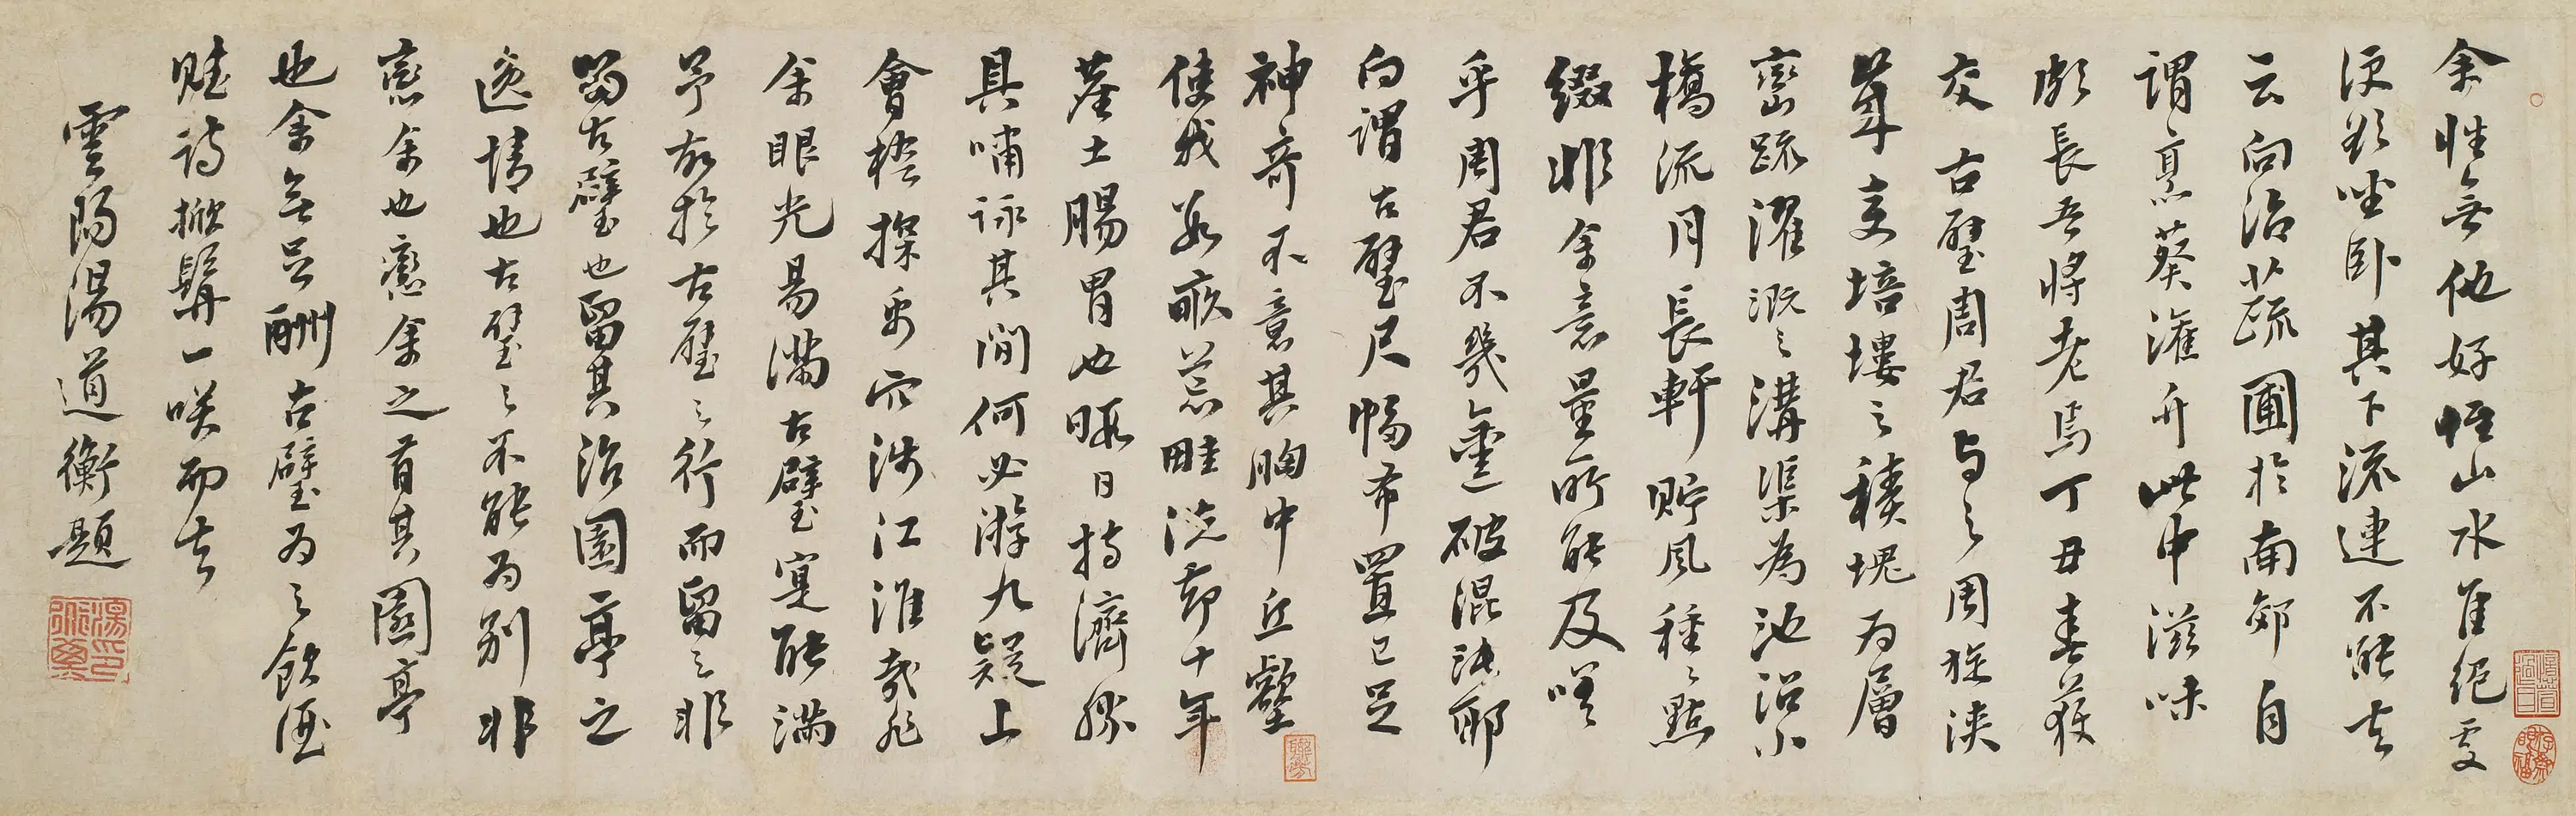 余性無他好惟山水佳絕處
便欲坐臥其下流連不能去
云向治蔬圃於南郊自
謂烹葵灌升此中滋味
頗長吾將老焉丁丑春獲
交古壁周君與之周旋浹
葺支培塿之積塊為層
巒疏濯溉之溝渠為池沼小
橋流月長軒貯風種種點
綴非余意量所能及嗟
乎周君不幾鑿破混沌耶
向謂古壁尺幅布置已足
神奇不意其胸中丘壑
使我數畝荒畦洗卻十年
塵土腸胃也暇日持濟勝
具嘯詠其間何必游九疑上
會稽探禹穴涉江淮哉非
余眼光易滿古壁寔能滿
予故於古壁之行而留之非
留古壁也留其治園亭之
逸情也古壁之不能為別非
戀余也戀余之有其園亭
也余無以酬古壁為之飲酒
賦詩掀髯一咲而去
雲陽湯道衡題